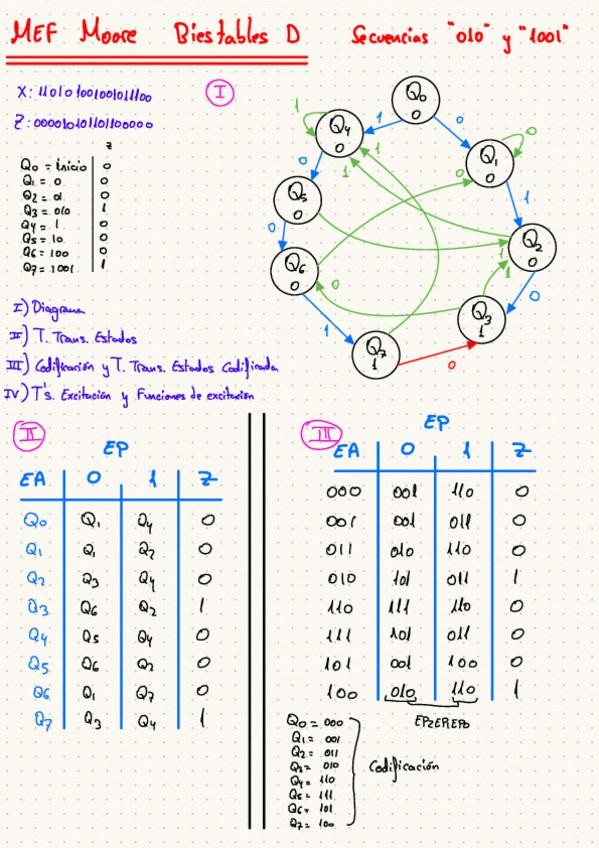 MEF Moore Biestables D Secuencias "010" y "1001"
X: 11010100100101100
Z: 00001010110110000
I
z
Q0 = inicio 0
Q1 = 0 0
Q2 = 01 0
Q3 = 010 1
Q4 = 1 0
Q5 = 10 0
Q6 = 100 0
Q7 = 1001 1
Q0
0
1
0
1
Q4
0
Q1
0
0
0
1
1
1
Q5
0
Q2
0
0
0
1
1
Q6
0
0
0
Q3
1
1
Q7
1
0
I) Diagrama
II) T. Trans. Estados
III) Codificación y T. Trans. Estados Codificada
IV) T's. Excitación y Funciones de excitación
II
EP
EA 0 1 Z
Q0 Q1 Q4 0
Q1 Q1 Q2 0
Q2 Q3 Q4 0
Q3 Q6 Q2 1
Q4 Q5 Q4 0
Q5 Q6 Q2 0
Q6 Q1 Q7 0
Q7 Q3 Q4 1
III
EP
EA 0 1 Z
000 001 110 0
001 001 011 0
011 010 110 0
010 101 011 1
110 111 110 0
111 101 011 0
101 001 100 0
100 010 110 1
EP2EP1EP0
Q0 = 000
Q1 = 001
Q2 = 011
Q3 = 010
Q4 = 110
Q5 = 111
Q6 = 101
Q7 = 100
Codificación